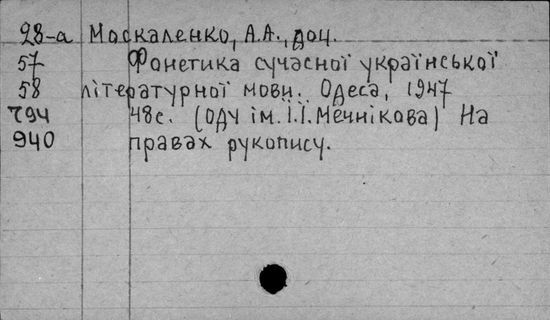 28-а Москаленко, А.А., доц.
57 Фонетика сучасної української
58 літературної мови. Одеса, 1947
794 48с. (ОДУ ім. І.І. Мечнікова) На
940 правах рукопису.